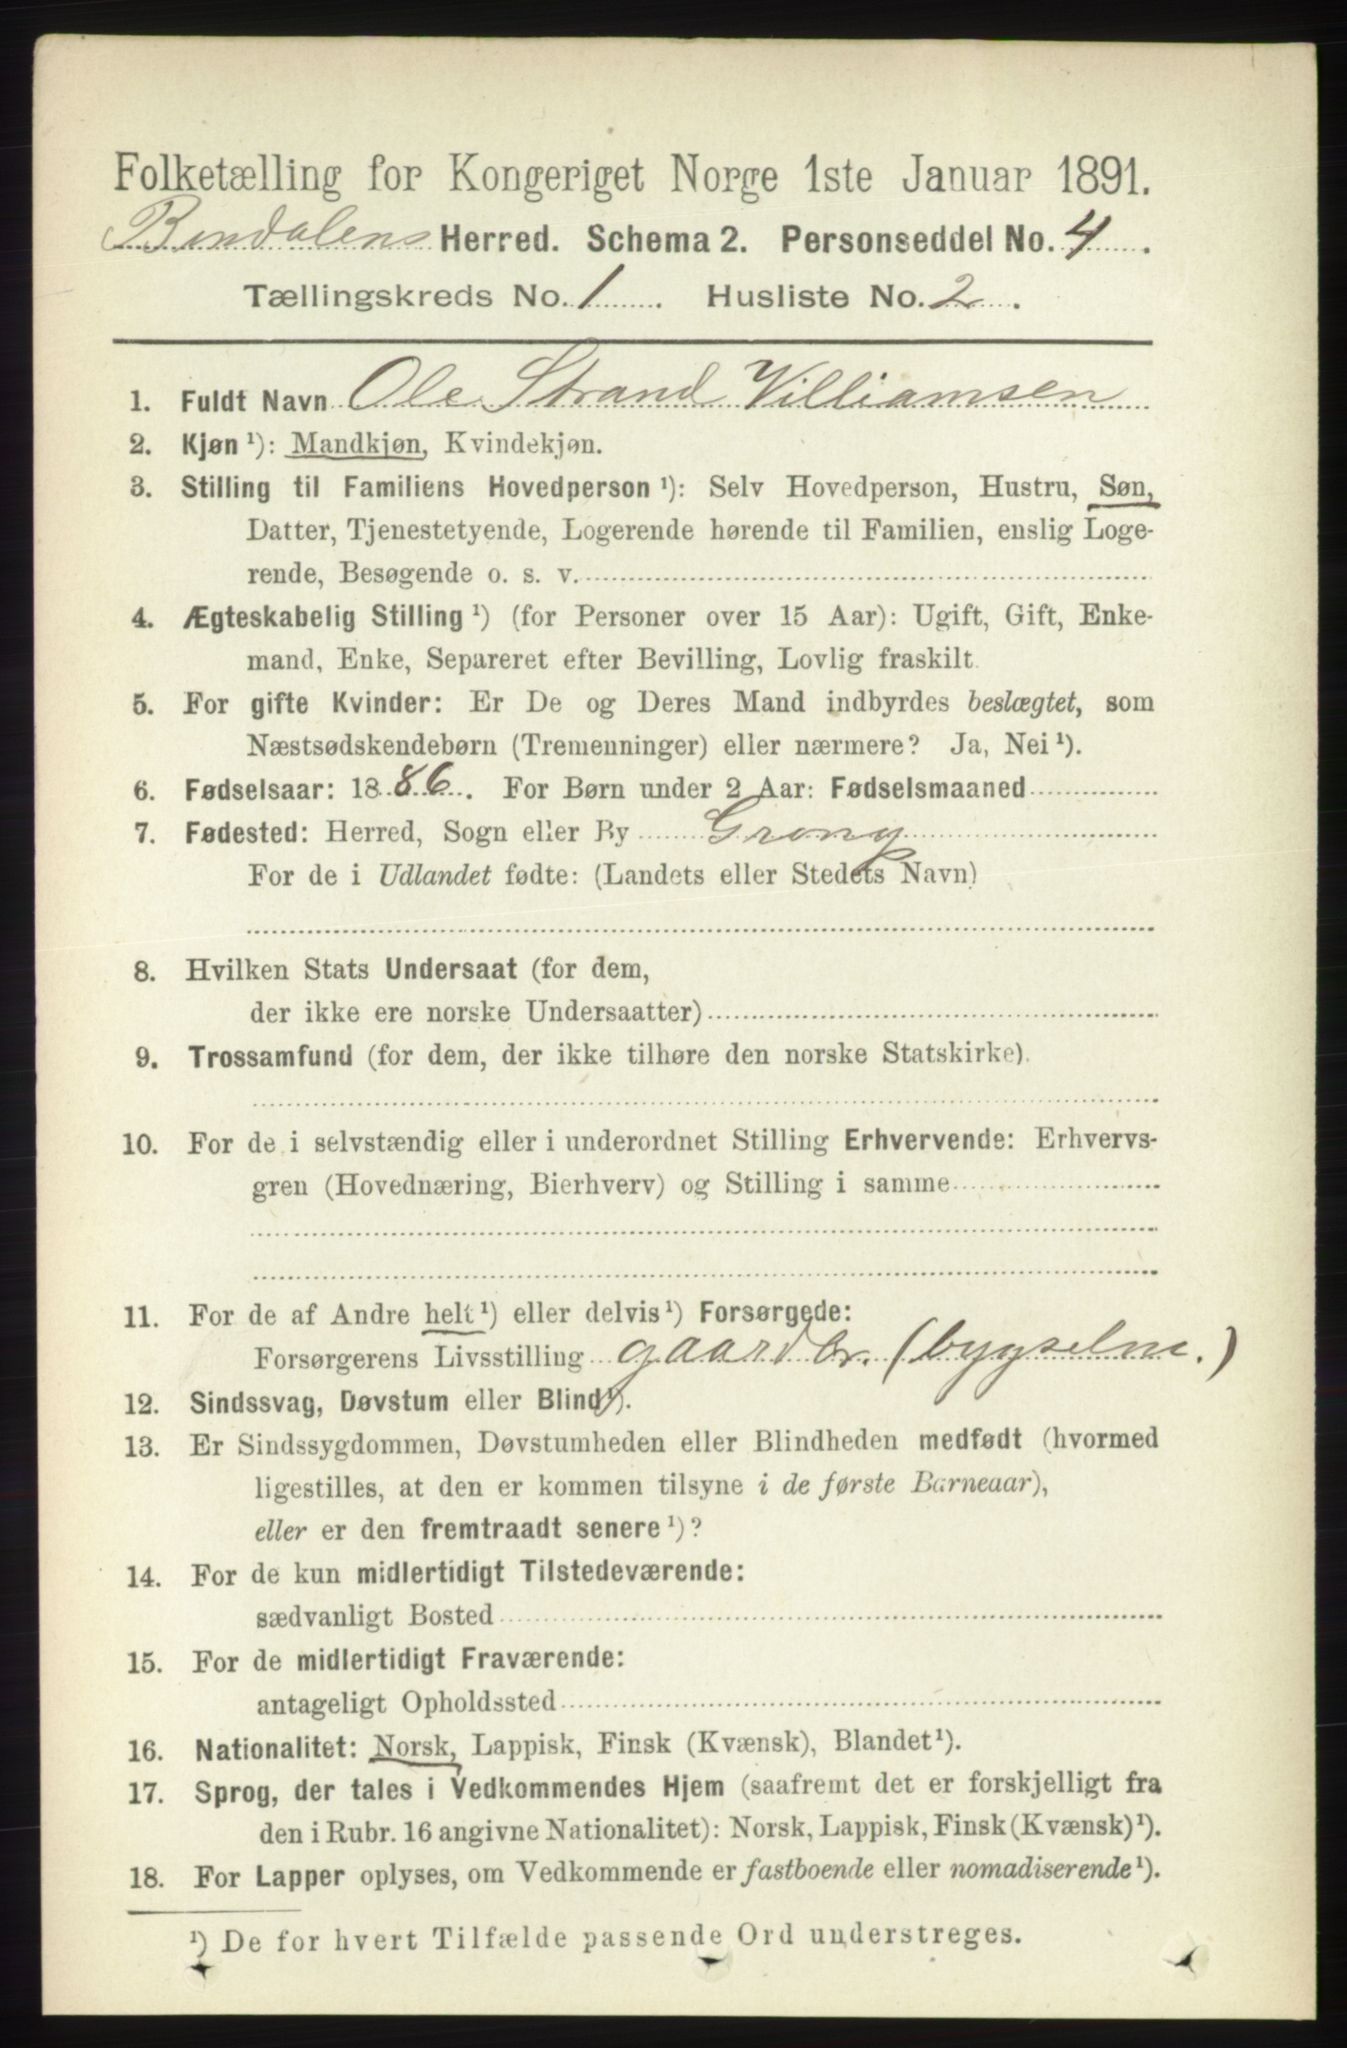 Folketælling for Kongeriget Norge 1ste Januar 1891.
Bindalens Herred. Schema 2. Personseddel No. 4.
Tællingskreds No. 1. Husliste No. 2.
1. Fuldt Navn Ole Strand Villiamsen
2. Kjøn ¹): Mandkjøn, Kvindekjøn.
3. Stilling til Familiens Hovedperson ¹): Selv Hovedperson, Hustru, Søn,
Datter, Tjenestetyende, Logerende hørende til Familien, enslig Loge-
rende, Besøgende o. s. v.
4. Ægteskabelig Stilling ¹) (for Personer over 15 Aar): Ugift, Gift, Enke-
mand, Enke, Separeret efter Bevilling, Lovlig fraskilt.
5. For gifte Kvinder: Er De og Deres Mand indbyrdes beslægtet, som
Næstsødskendebørn (Tremenninger) eller nærmere? Ja, Nei ¹).
6. Fødselsaar: 1886. For Børn under 2 Aar: Fødselsmaaned
7. Fødested: Herred, Sogn eller By Grong
For de i Udlandet fødte: (Landets eller Stedets Navn)
8. Hvilken Stats Undersaat (for dem,
der ikke ere norske Undersaatter)
9. Trossamfund (for dem, der ikke tilhøre den norske Statskirke).
10. For de i selvstændig eller i underordnet Stilling Erhvervende: Erhvervs-
gren (Hovednæring, Bierhverv) og Stilling i samme
11. For de af Andre helt ¹) eller delvis ¹) Forsørgede:
Forsørgerens Livsstilling gaardbr. (bygselm.)
12. Sindssvag, Døvstum eller Blind ¹).
13. Er Sindssygdommen, Døvstumheden eller Blindheden medfødt (hvormed
ligestilles, at den er kommen tilsyne i de første Barneaar),
eller er den fremtraadt senere ¹)?
14. For de kun midlertidigt Tilstedeværende:
sædvanligt Bosted
15. For de midlertidigt Fraværende:
antageligt Opholdssted
16. Nationalitet: Norsk, Lappisk, Finsk (Kvænsk), Blandet ¹).
17. Sprog, der tales i Vedkommendes Hjem (saafremt det er forskjelligt fra
den i Rubr. 16 angivne Nationalitet): Norsk, Lappisk, Finsk (Kvænsk) ¹).
18. For Lapper oplyses, om Vedkommende er fastboende eller nomadiserende ¹).
¹) De for hvert Tilfælde passende Ord understreges.